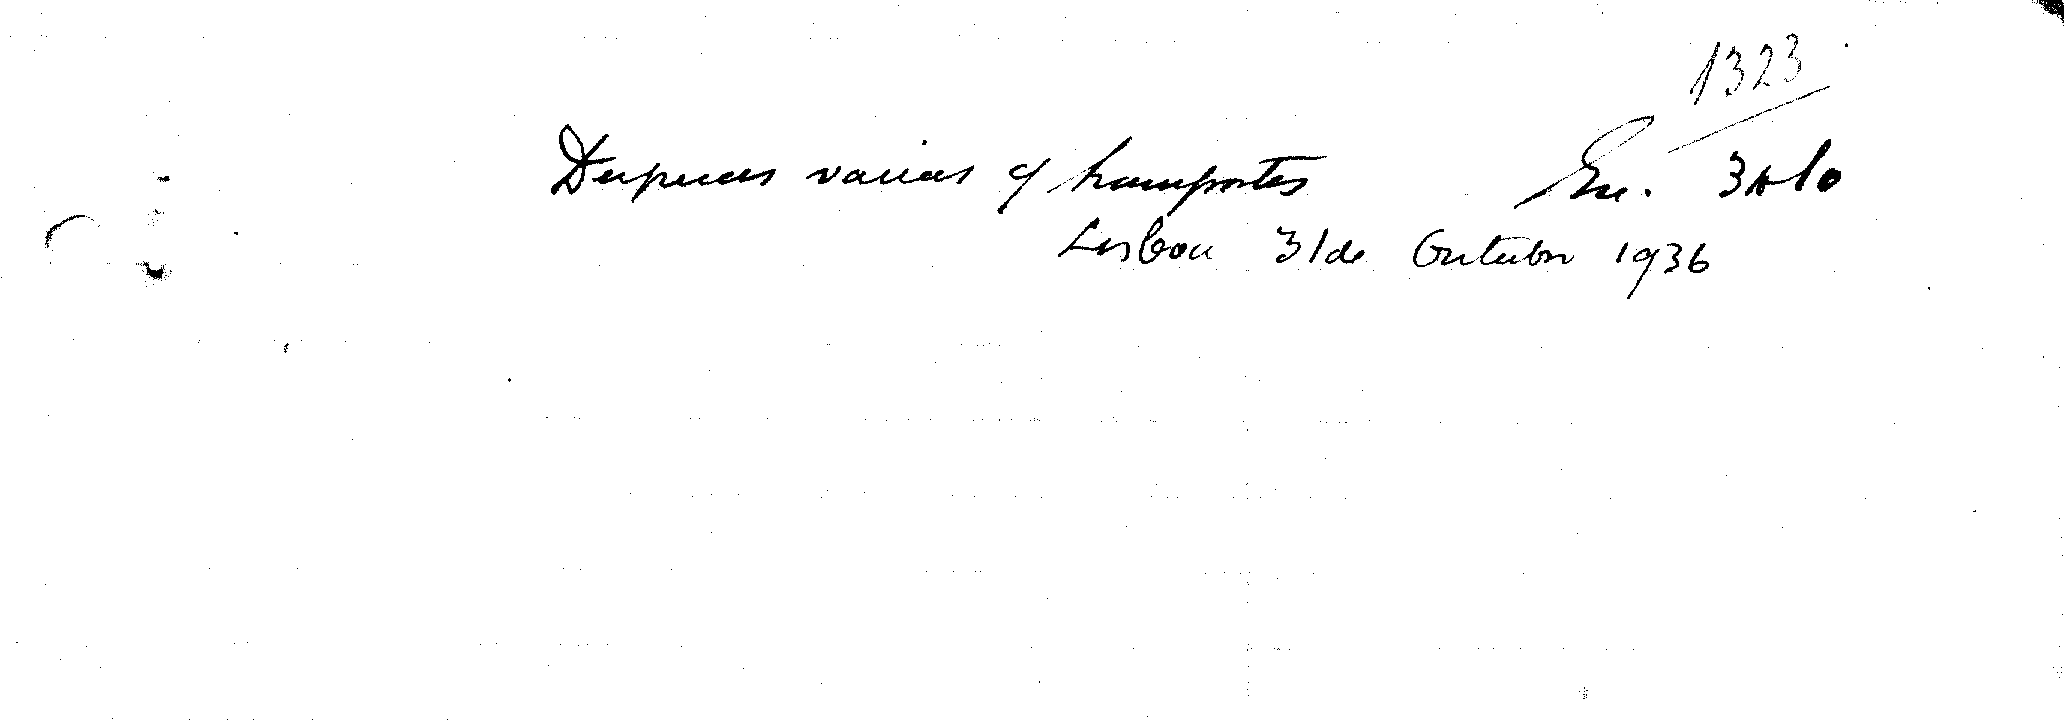 1323
Despezas varias c/ transportes Esc. 3$10
Lisboa 31 de Outubro 1936